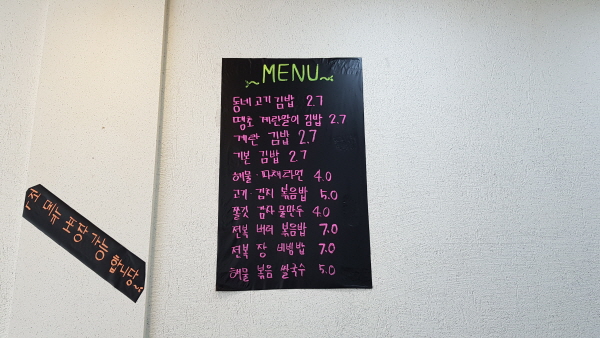 MENU
동네 고기 김밥 2.7
땡초 계란말이 김밥 2.7
계란 김밥 2.7
기본 김밥 2.7
해물·파채라면 4.0
고기·김치 볶음밥 5.0
쫄깃 감자 물만두 4.0
전복 버터 볶음밥 7.0
전복 장 비빔밥 7.0
해물 볶음 쌀국수 5.0
전 메뉴 포장 가능 합니당~